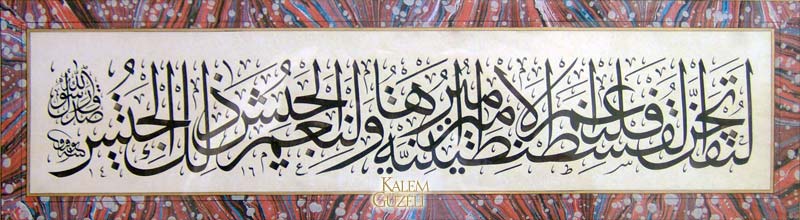 لتفتحن القسطنطينية فلنعم الأمير أميرها ولنعم الجيش ذلك الجيش
صدق رسول الله
KALEM
GÜZELİ